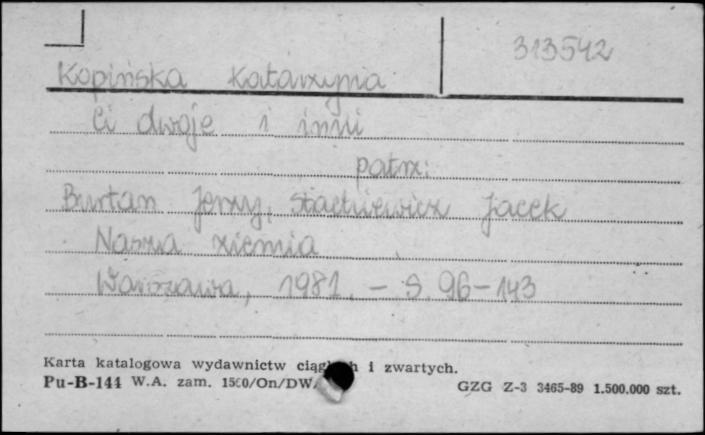 313542
Kopińska Katarzyna
Ci dwoje i inni
patrz:
Burtan Jerzy, Stachiewicz Jacek
Nasza ziemia
Warszawa, 1981. – S. 96–143
Karta katalogowa wydawnictw i zwartych.
Pu-B-144 W.A. zam. 1500/On/DW/ GZG Z-3 3465-89 1.500.000 szt.